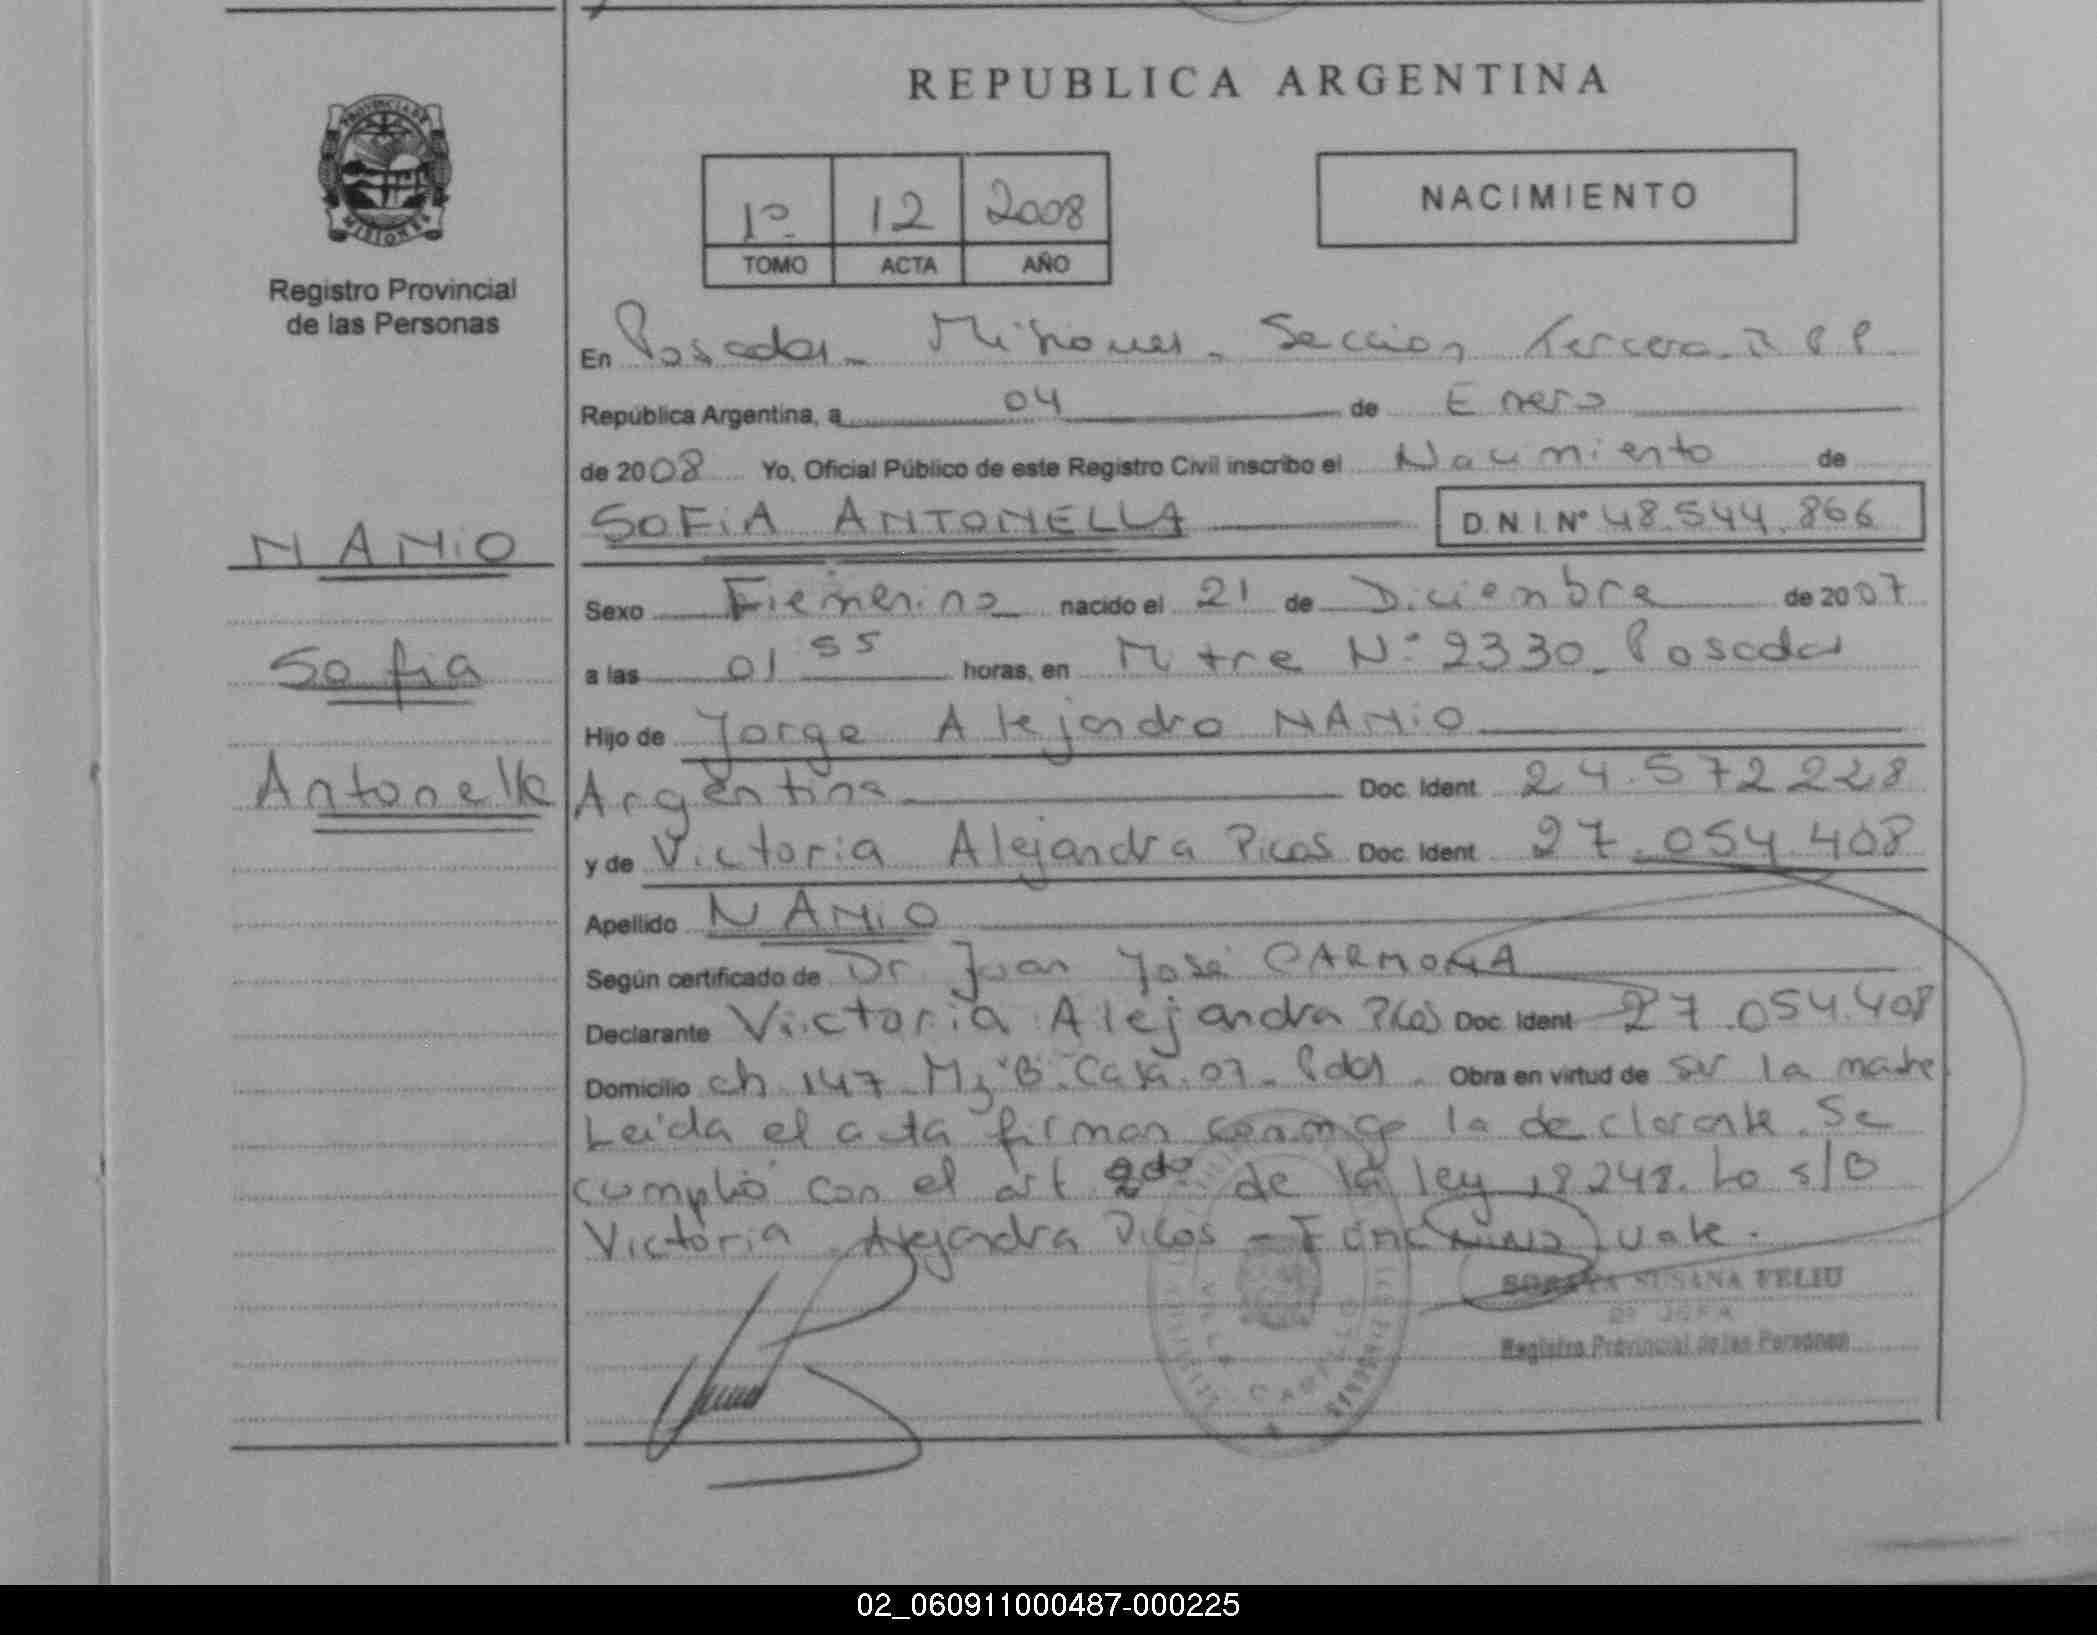 REPUBLICA ARGENTINA
PROVINCIA DE MISIONES
Registro Provincial
de las Personas
1º 12 2008
TOMO ACTA AÑO
NACIMIENTO
En Posadas. Misiones. Seccion Tercera R P P.
República Argentina, a 04 de Enero
de 2008 Yo, Oficial Público de este Registro Civil inscribo el Nacimiento de
SOFiA ANTONELLA D.N.I.Nº 48.544.866
NANiO
Sofia
Antonella
Sexo Fiemenino nacido el 21 de Diciembre de 2007
a las 01 55 horas, en Mitre Nº 2330. Posadas
Hijo de Jorge Alejandro NANiO
Argentina Doc. Ident 24.572228
y de Victoria Alejandra Picos Doc. Ident 27.054.408
Apellido NANiO
Según certificado de Dr. Juan José CARMONA
Declarante Victoria Alejandra Picos Doc. Ident 27.054.408
Domicilio ch 147 Mz "B" Casa 07. Pdas. Obra en virtud de ser la madre
Leida el acta firman conmigo la declarante. Se
cumplió con el art 2do de la ley 18248. Lo s/B
Victoria Alejandra Picos - vale.
SUSANA FELIU
2º JEFA
Registro Provincial de las Personas
02_060911000487-000225